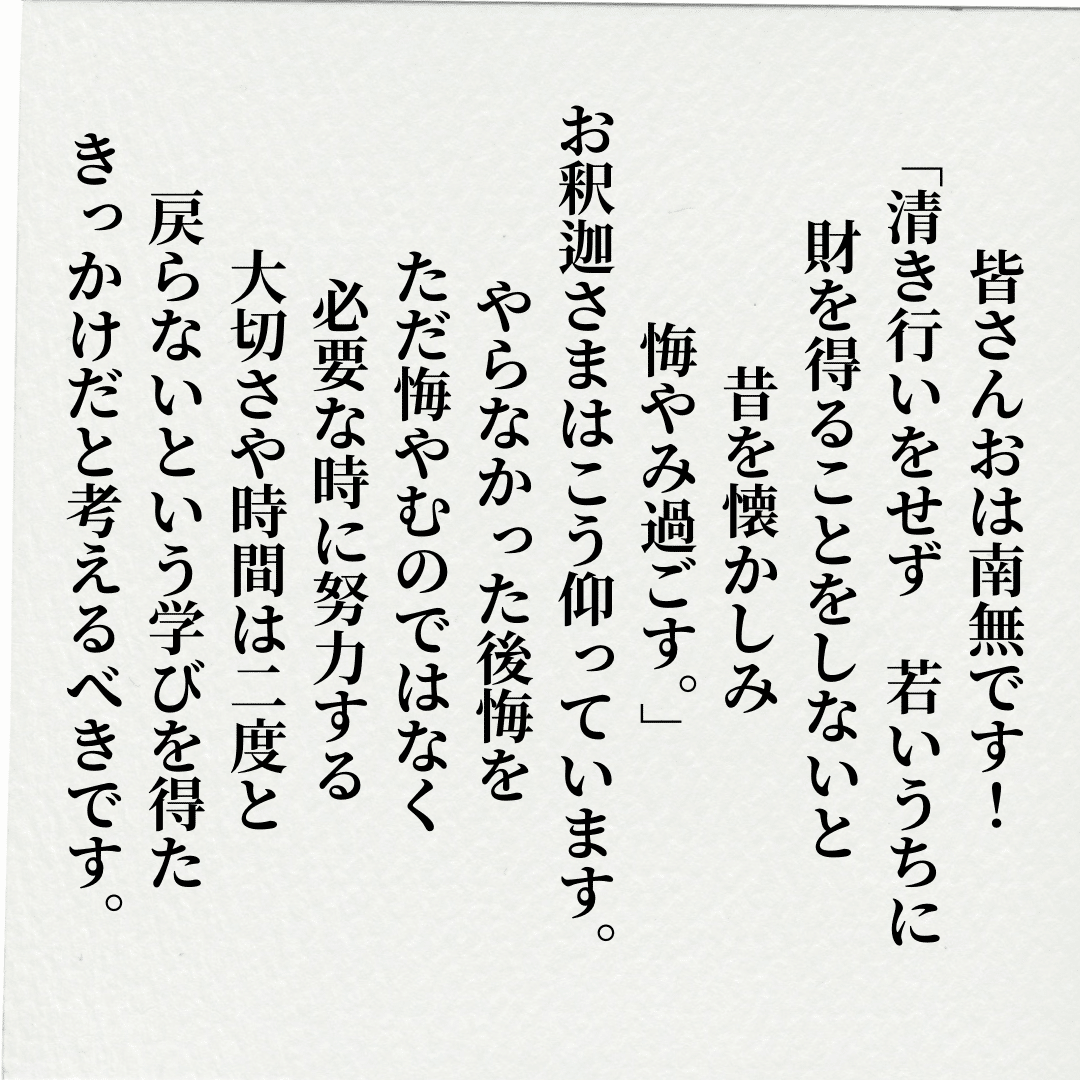 皆さんおは南無です！
「清き行いをせず　若いうちに
財を得ることをしないと
昔を懐かしみ
悔やみ過ごす。」
お釈迦さまはこう仰っています。
やらなかった後悔を
ただ悔やむのではなく
必要な時に努力する
大切さや時間は二度と
戻らないという学びを得た
きっかけだと考えるべきです。